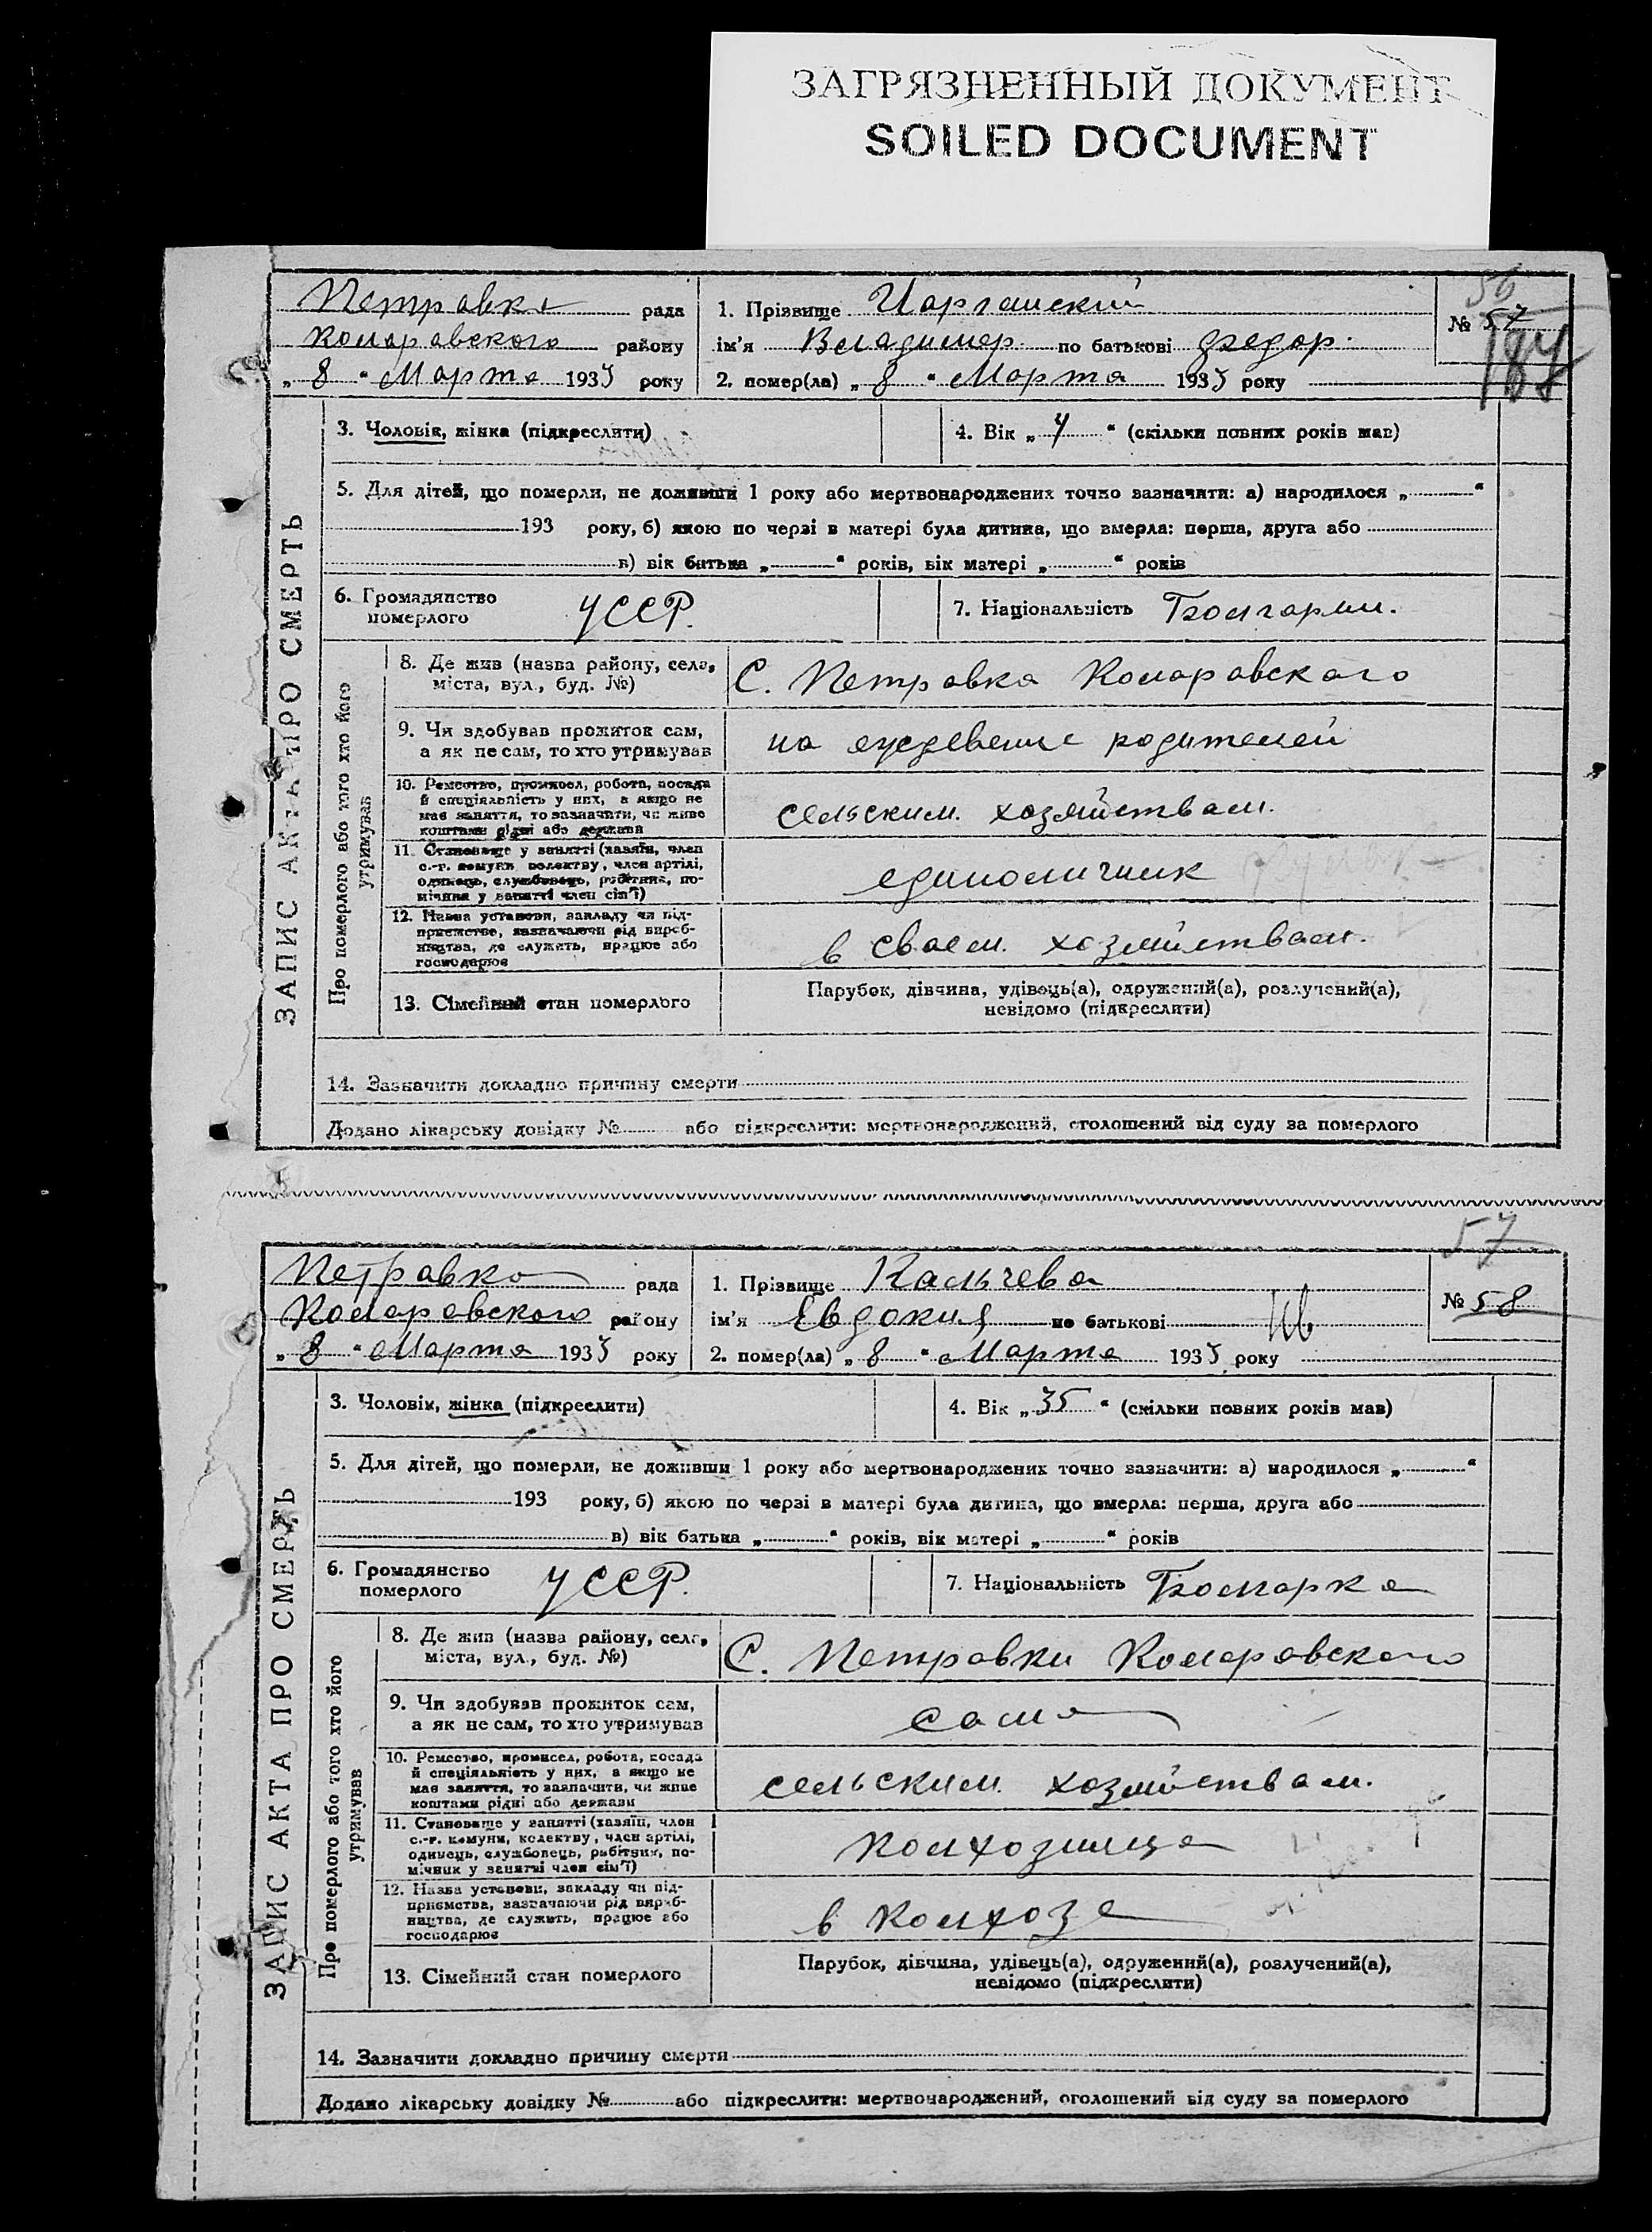 ЗАГРЯЗНЕННЫЙ ДОКУМЕНТ
SOILED DOCUMENT
ЗАПИС АКТА ПРО СМЕРТЬ
Петравка рада
Комаравского району
„8“ Марта 1933 року
1. Прізвище
ім'я Владимер. по батькові Федор.
2. помер(ла) „8“ Марта 1933 року
56
№ 57
184
3. Чоловік, жінка (підкреслити)
4. Вік „4“ (скільки повних років мав)
5. Для дітей, що померли, не доживши 1 року або мертвонароджених точно зазначити: а) народилося „ “
193 року, б) якою по черзі в матері була дитина, що вмерла: перша, друга або
в) вік батька „ “ років, вік матері „ “ років
6. Громадянство
померлого
УССР.
7. Національність Болгарин.
Про померлого або того хто його
утримував
8. Де жив (назва району, села,
міста, вул., буд. №)
С. Петравка Комаравского
9. Чи здобував прожиток сам,
а як не сам, то хто утримував
на родителей
10. Ремество, промисел, робота, посада
й спеціяльність у них, а якщо не
має заняття, то зазначити, чи живе
коштами рідні або держави
сельским. хозяйствам.
11. Становище у занятті (хазяїн, член
с.-г. комуни, колективу, член артілі,
одинець, службовець, робітник, по-
мічник у занятті член сім'ї)
единоличник
12. Назва установи, закладу чи під-
приємства, зазначаючи рід вироб-
ництва, де служить, працює або
господарює
в своем. хозяйствам.
13. Сімейний стан померлого
Парубок, дівчина, удівець(а), одружений(а), розлучений(а),
невідомо (підкреслити)
14. Зазначити докладно причину смерти
Додано лікарську довідку № або підкреслити: мертвонароджений, оголошений від суду за померлого
57
ЗАПИС АКТА ПРО СМЕРТЬ
Петравка рада
Комаравского району
„8“ Марта 1933 року
1. Прізвище Кальчева
ім'я Евдокия по батькові Ив
2. помер(ла) „8“ Марта 1933 року
№ 58
3. Чоловік, жінка (підкреслити)
4. Вік „35“ (скільки повних років мав)
5. Для дітей, що померли, не доживши 1 року або мертвонароджених точно зазначити: а) народилося „ “
193 року, б) якою по черзі в матері була дитина, що вмерла: перша, друга або
в) вік батька „ “ років, вік матері „ “ років
6. Громадянство
померлого
УССР.
7. Національність Болгарка
Про померлого або того хто його
утримував
8. Де жив (назва району, села,
міста, вул., буд. №)
С. Петравки Комаровского
9. Чи здобував прожиток сам,
а як не сам, то хто утримував
сама
10. Ремество, промисел, робота, посада
й спеціяльність у них, а якщо не
має заняття, то зазначити, чи живе
коштами рідні або держави
сельским. хозяйствам.
11. Становище у занятті (хазяїн, член
с.-г. комуни, колективу, член артілі,
одинець, службовець, робітник, по-
мічник у занятті член сім'ї)
колхозница
12. Назва установи, закладу чи під-
приємства, зазначаючи рід вироб-
ництва, де служить, працює або
господарює
в колхозе
13. Сімейний стан померлого
Парубок, дівчина, удівець(а), одружений(а), розлучений(а),
невідомо (підкреслити)
14. Зазначити докладно причину смерти
Додано лікарську довідку № або підкреслити: мертвонароджений, оголошений від суду за померлого